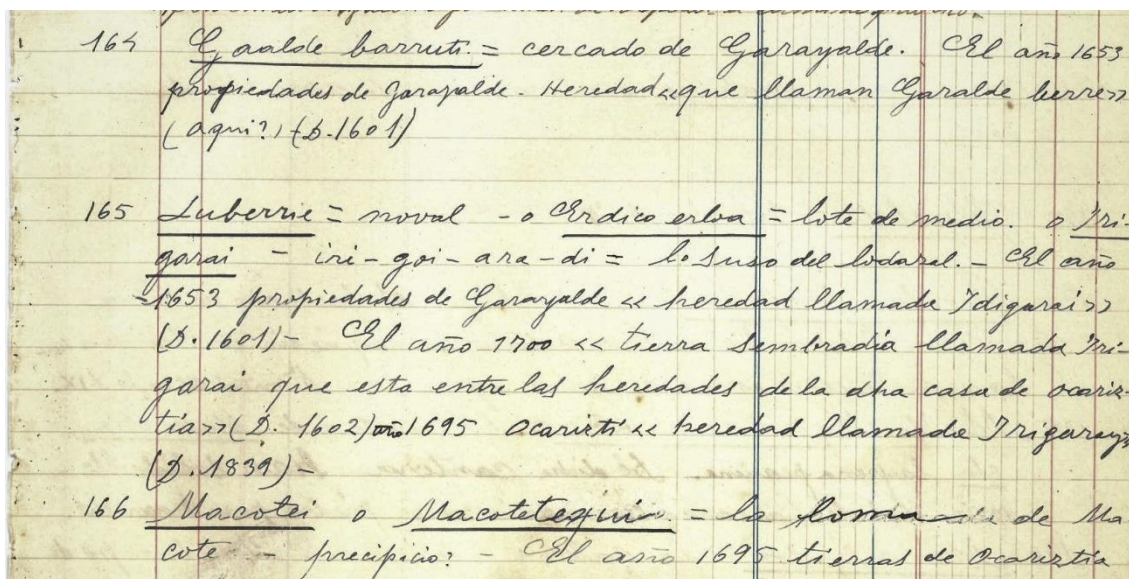 164 Gaalde barruti. = cercado de Garayalde. El año 1653
propiedades de Garayalde. Heredad «que llaman Garalde berre»
(aqui?) (D.1601)
165 Luberrie = noval - o Erdico erloa = lote de medio. o Iri-
garai - iri-goi-ara-di = lo suso del lodazal. - El año
-1653 propiedades de Garayalde « heredad llamada Idigarai»
(D.1601)- El año 1700 « tierra sembradia llamada Iri-
garai que esta entre las heredades de la dha casa de ocariz-
tia»(D. 1602) año 1695 Ocarizti « heredad llamada Irigaray»
(D.1839)-
166 Macotei o Macotetegui = la de Ma
cote - precipicio? - El año 1695 tierras de Ocariztia